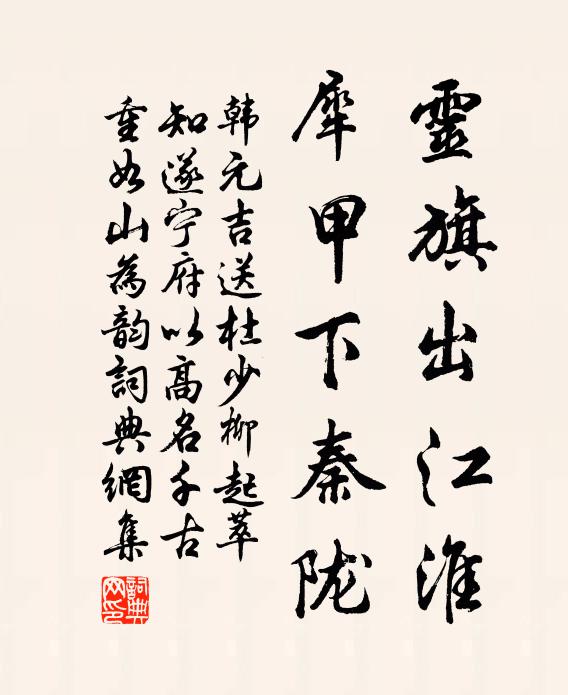 靈旗出江淮
犀甲下秦陇
韩元吉送杜少卿起莘
知遂宁府以高名千古
重如山為韵詞典網集
詞典网印